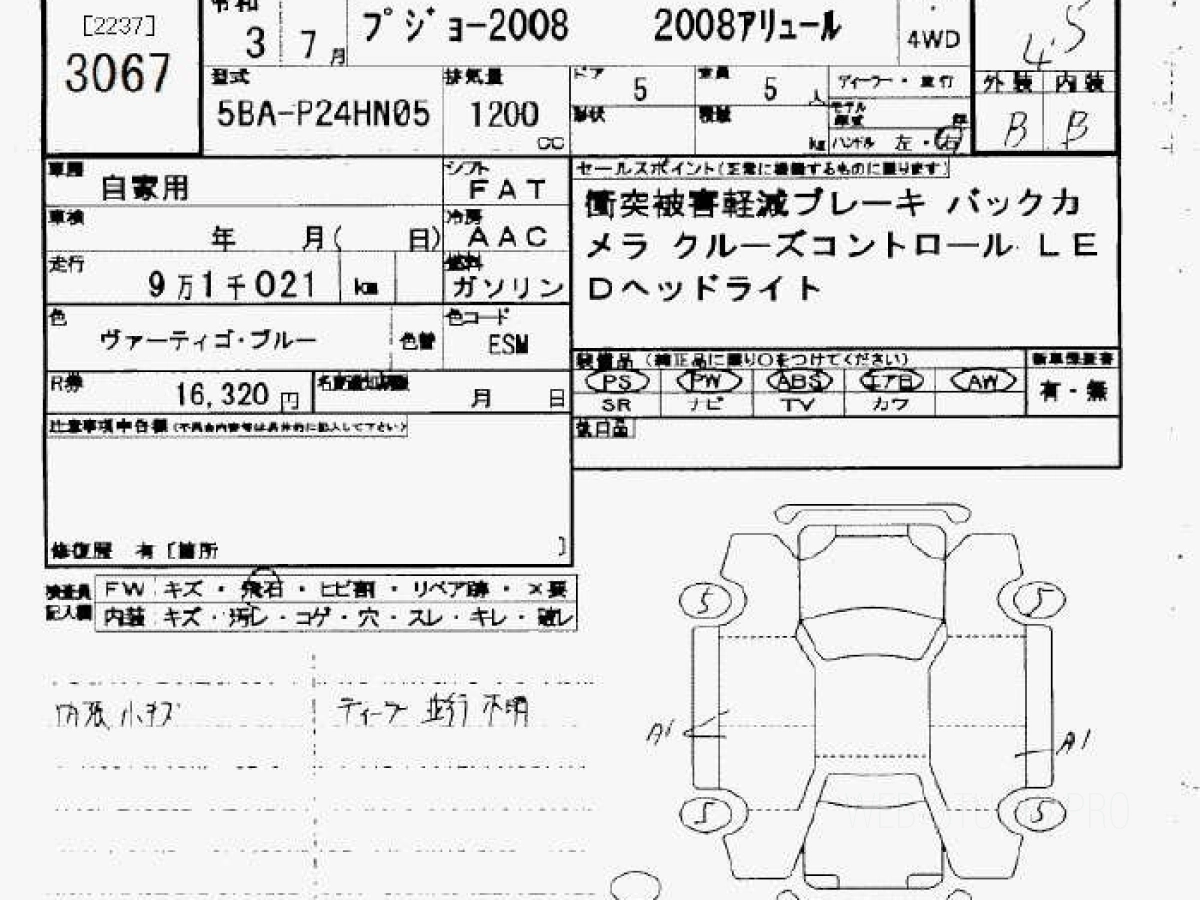 [2237]
3067
令和
3 7月
プジョー2008 2008アリュール
4WD
4.5
型式
5BA-P24HN05
排気量
1200
cc
ドア 5
定員 5 人
形状
積載 kg
ディーラー・並行
モデル年式 年
ハンドル 左・右
外装 内装
B B
車歴
自家用
シフト
FAT
車検
年 月( 日)
冷房
AAC
走行
9万1千021 km
燃料
ガソリン
色
ヴァーティゴ・ブルー
色替
色コード
ESM
R券
16,320円
名変通知期限
月 日
セールスポイント(正常に機能するものに限ります)
衝突被害軽減ブレーキ バックカ
メラ クルーズコントロール LE
Dヘッドライト
装備品(純正品に限り○をつけてください)
PS PW ABS エアB AW
SR ナビ TV カワ
新車保証書
有・無
注意事項申告欄(不具合内容等は具体的に記入して下さい)
修復歴 有〔箇所 〕
検査員
記入欄
FW キズ・飛石・ヒビ割・リペア跡・×要
内装 キズ・汚レ・コゲ・穴・スレ・キレ・破レ
内張小キズ
ディーラー 並行 不明
5 5
A1 A1
5 5